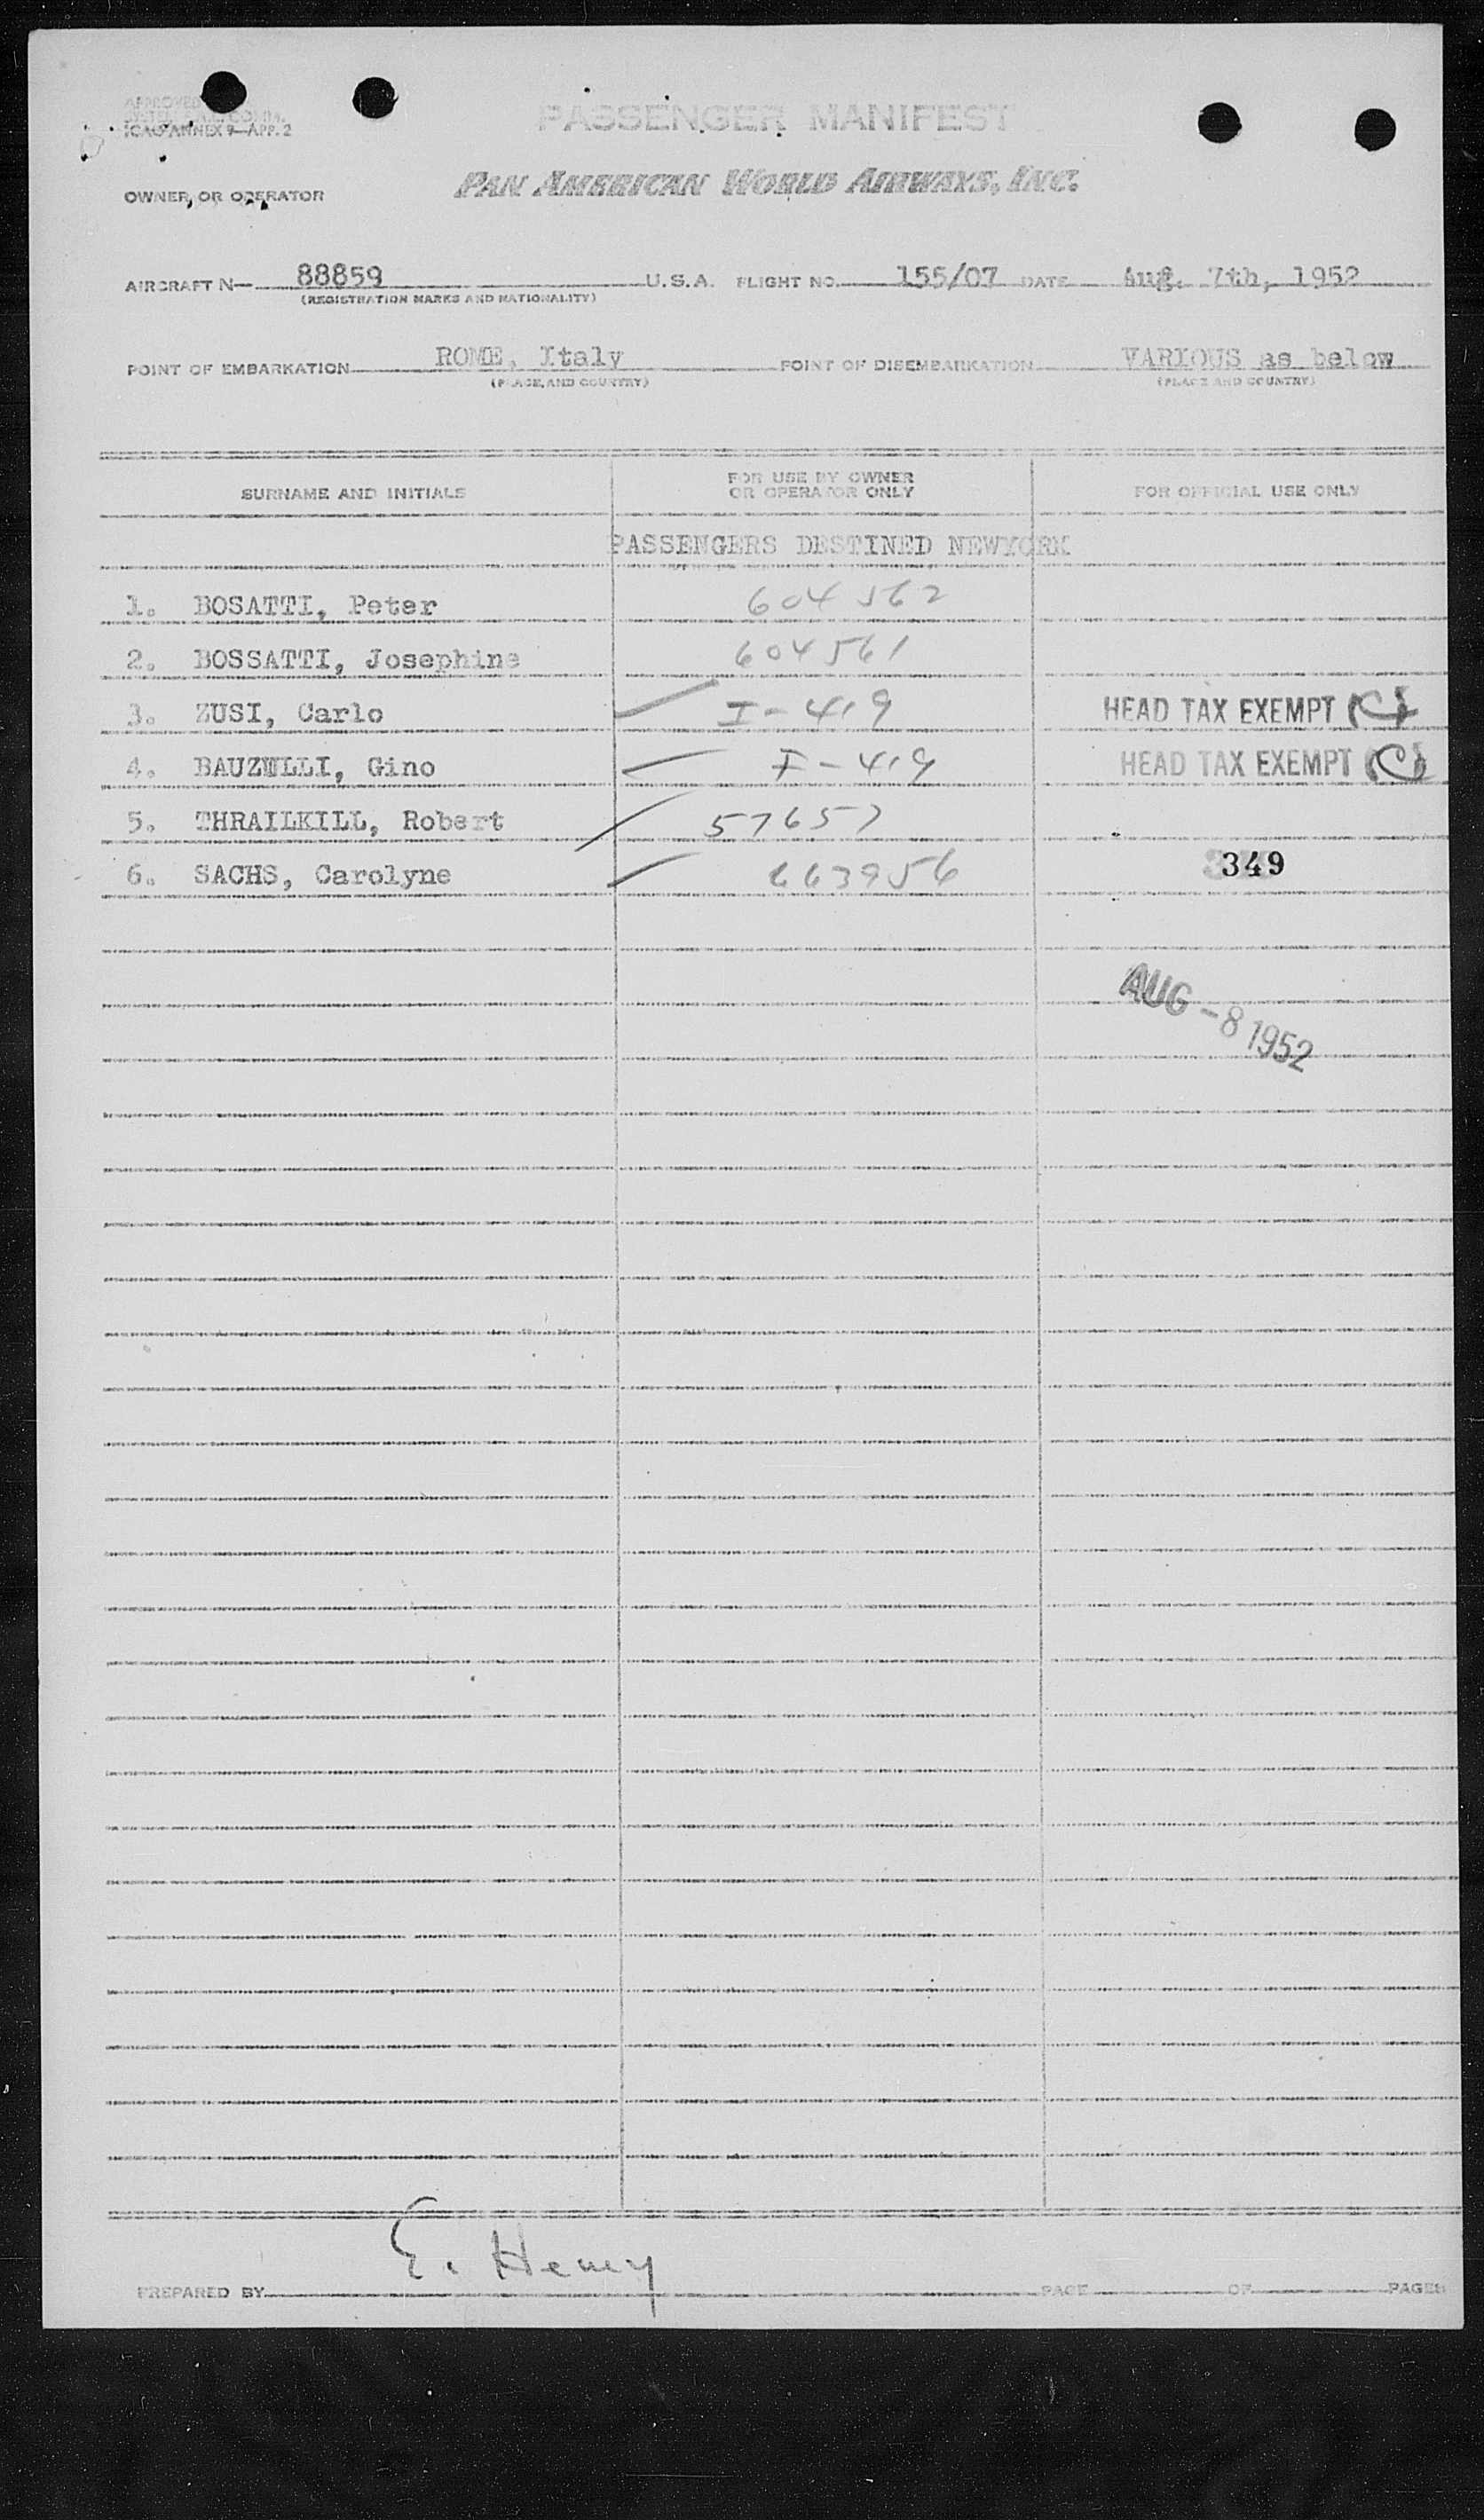 APPROVED
ICAO ANNEX 9—APP. 2
PASSENGER MANIFEST
PAN AMERICAN WORLD AIRWAYS, INC.
OWNER, OR OPERATOR
AIRCRAFT N— 88859 U.S.A. FLIGHT NO. 155/07 DATE Aug. 7th, 1952
(REGISTRATION MARKS AND NATIONALITY)
POINT OF EMBARKATION ROME, Italy POINT OF DISEMBARKATION VARIOUS as below
(PLACE, AND COUNTRY) (PLACE AND COUNTRY)
SURNAME AND INITIALS FOR USE BY OWNER OR OPERATOR ONLY FOR OFFICIAL USE ONLY
PASSENGERS DESTINED NEWYORK
1. BOSATTI, Peter 604562
2. BOSSATTI, Josephine 604561
3. ZUSI, Carlo I-419 HEAD TAX EXEMPT
4. BAUZULLI, Gino I-419 HEAD TAX EXEMPT
5. THRAILKILL, Robert 57657
6. SACHS, Carolyne 663956 349
AUG -8 1952
E. Henry
PREPARED BY PAGE OF PAGES